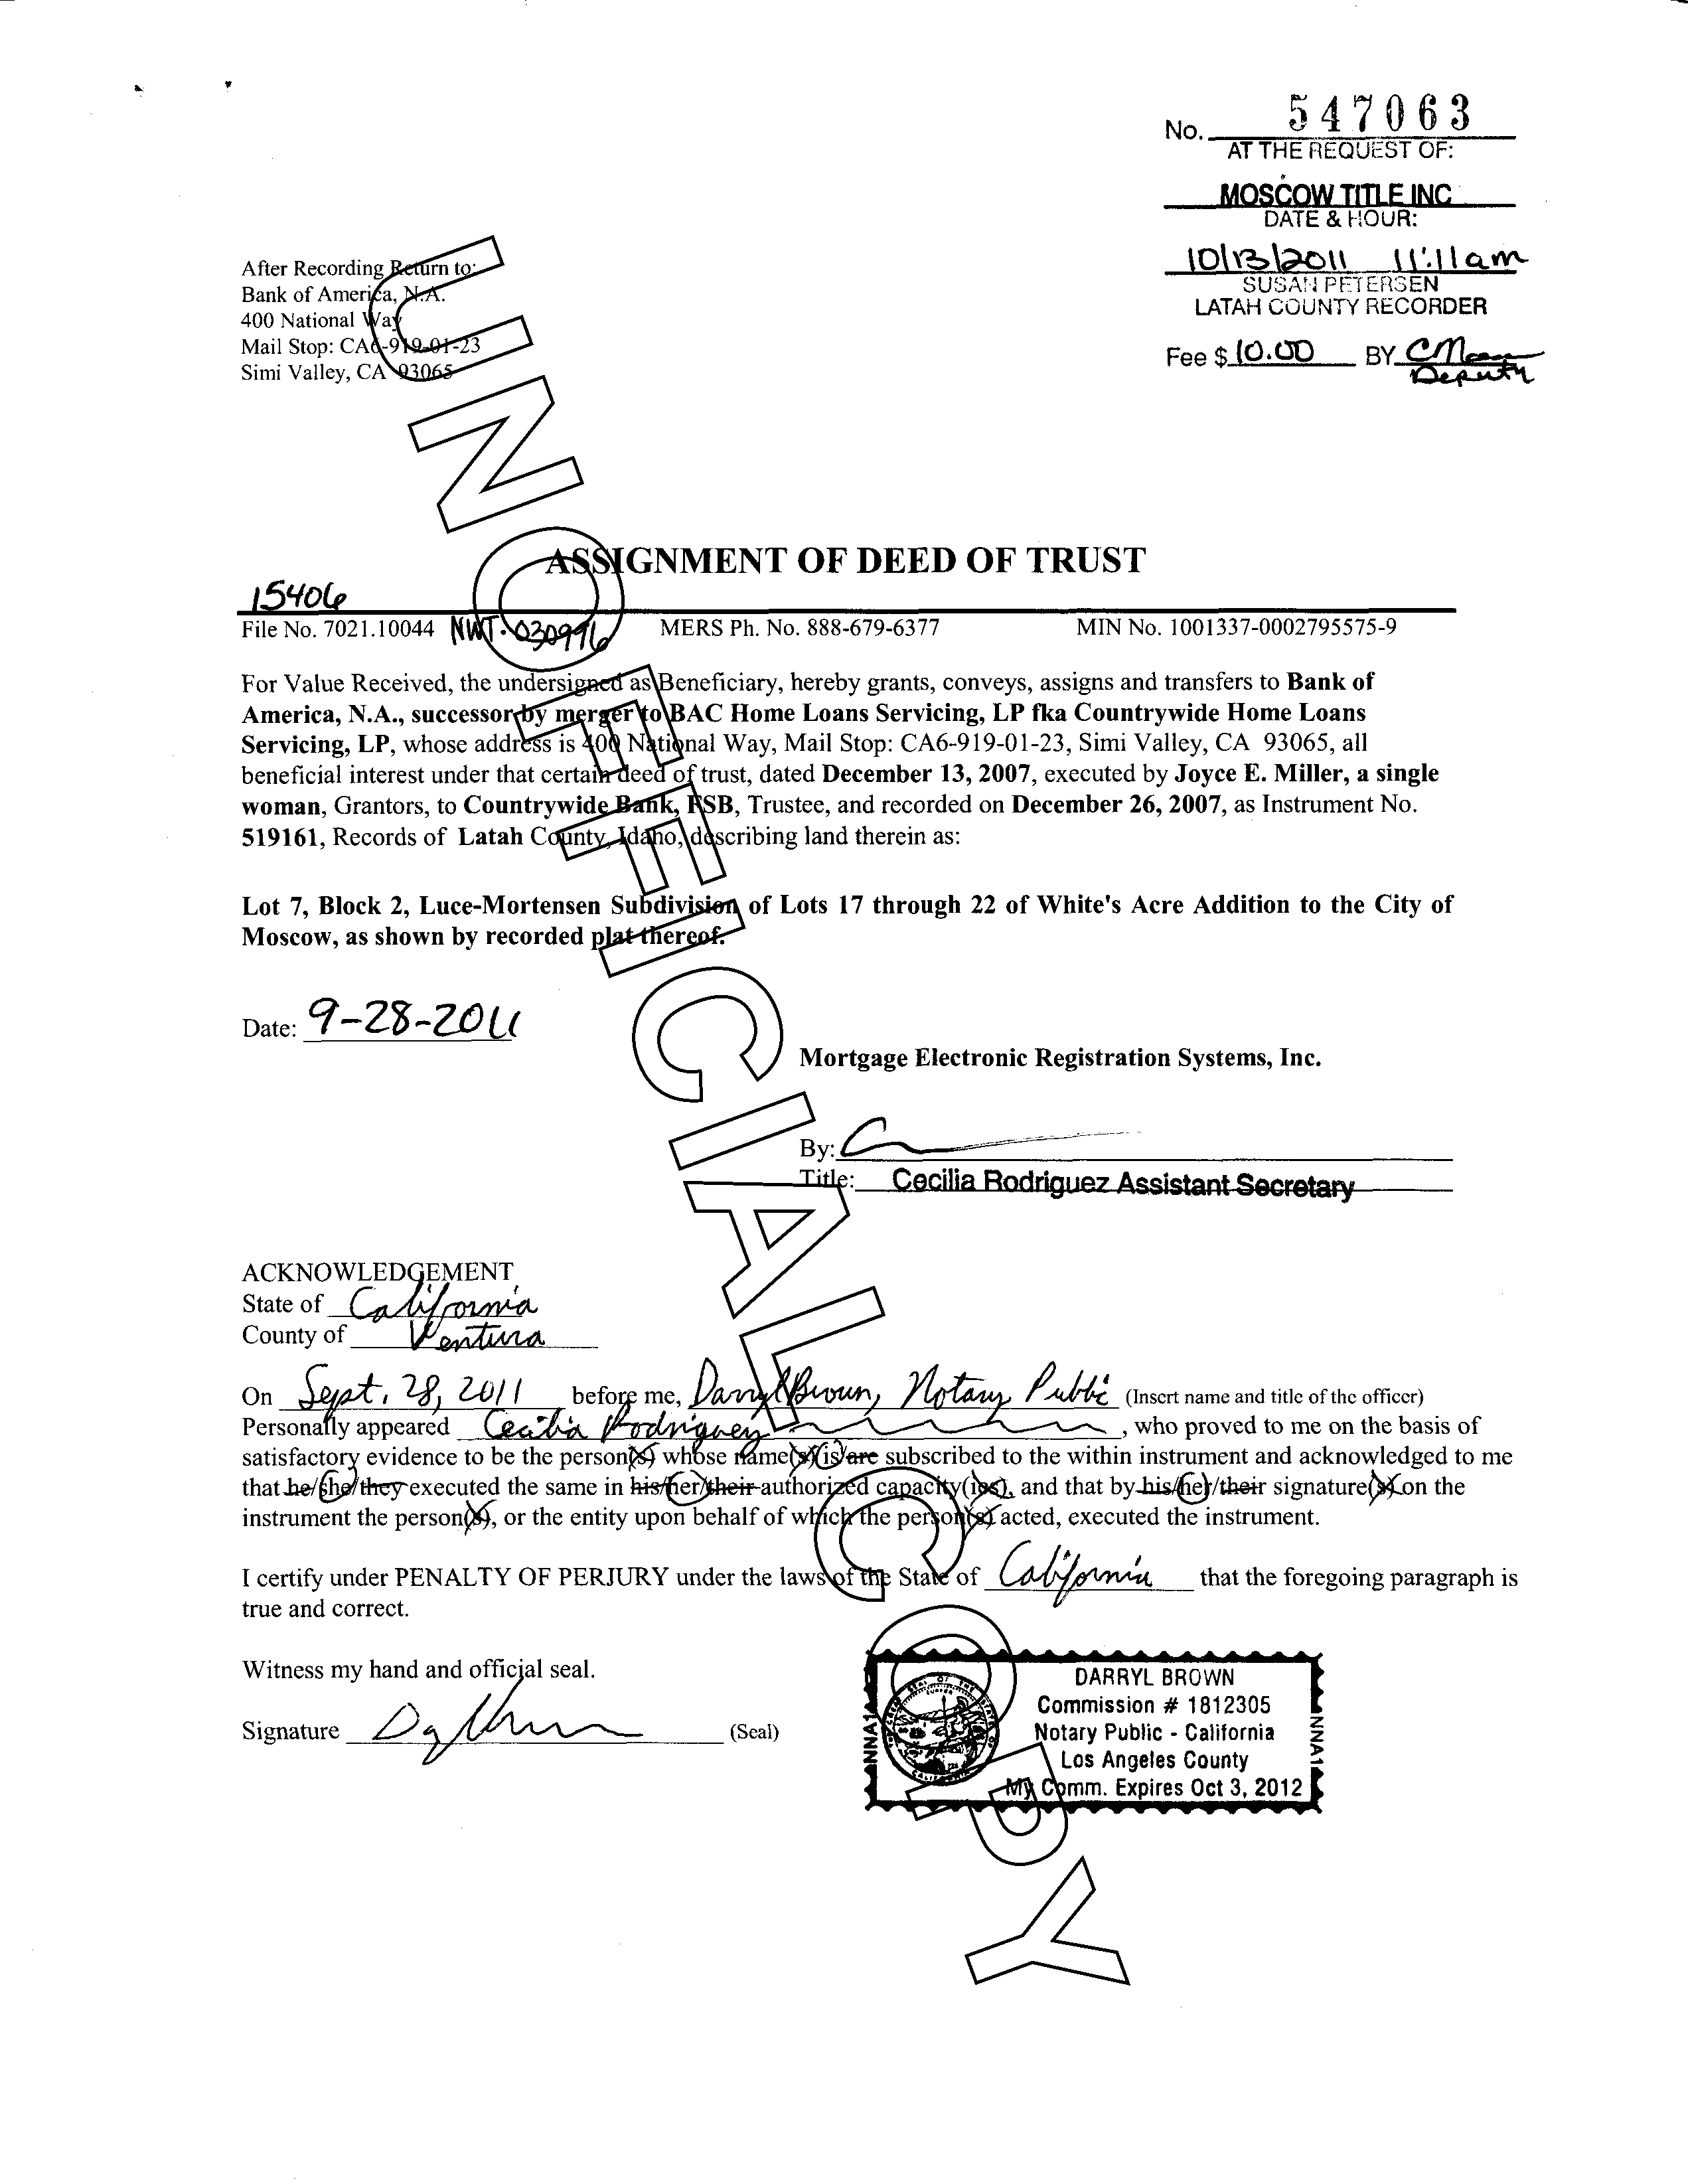 No. 547063
AT THE REQUEST OF:
MOSCOW TITLE INC
DATE & HOUR:
10/13/2011 11:11am
SUSAN PETERSEN
LATAH COUNTY RECORDER
Fee $ 10.00 BY
Deputy
After Recording Return to:
Bank of America, N.A.
400 National Way
Mail Stop: CA6-919-01-23
Simi Valley, CA 93065
ASSIGNMENT OF DEED OF TRUST
15406
File No. 7021.10044 NWT-030996 MERS Ph. No. 888-679-6377 MIN No. 1001337-0002795575-9
For Value Received, the undersigned as Beneficiary, hereby grants, conveys, assigns and transfers to Bank of
America, N.A., successor by merger to BAC Home Loans Servicing, LP fka Countrywide Home Loans
Servicing, LP, whose address is 400 National Way, Mail Stop: CA6-919-01-23, Simi Valley, CA 93065, all
beneficial interest under that certain deed of trust, dated December 13, 2007, executed by Joyce E. Miller, a single
woman, Grantors, to Countrywide Bank, FSB, Trustee, and recorded on December 26, 2007, as Instrument No.
519161, Records of Latah County, Idaho, describing land therein as:
Lot 7, Block 2, Luce-Mortensen Subdivision of Lots 17 through 22 of White's Acre Addition to the City of
Moscow, as shown by recorded plat thereof.
Date: 9-28-2011
Mortgage Electronic Registration Systems, Inc.
By:
Title: Cecilia Rodriguez Assistant Secretary
ACKNOWLEDGEMENT
State of California
County of Ventura
On Sept. 28, 2011 before me, Darryl Brown, Notary Public (Insert name and title of the officer)
Personally appeared Cecilia Rodriguez, who proved to me on the basis of
satisfactory evidence to be the person(s) whose name(s)(is)are subscribed to the within instrument and acknowledged to me
that he/she/they executed the same in his/her/their authorized capacity(ies), and that by his/her/their signature(s) on the
instrument the person(s), or the entity upon behalf of which the person(s) acted, executed the instrument.
I certify under PENALTY OF PERJURY under the laws of the State of California that the foregoing paragraph is
true and correct.
Witness my hand and official seal.
Signature (Seal)
DARRYL BROWN
Commission # 1812305
Notary Public - California
Los Angeles County
My Comm. Expires Oct 3, 2012
NNA1
NNA1
UNOFFICIAL COPY